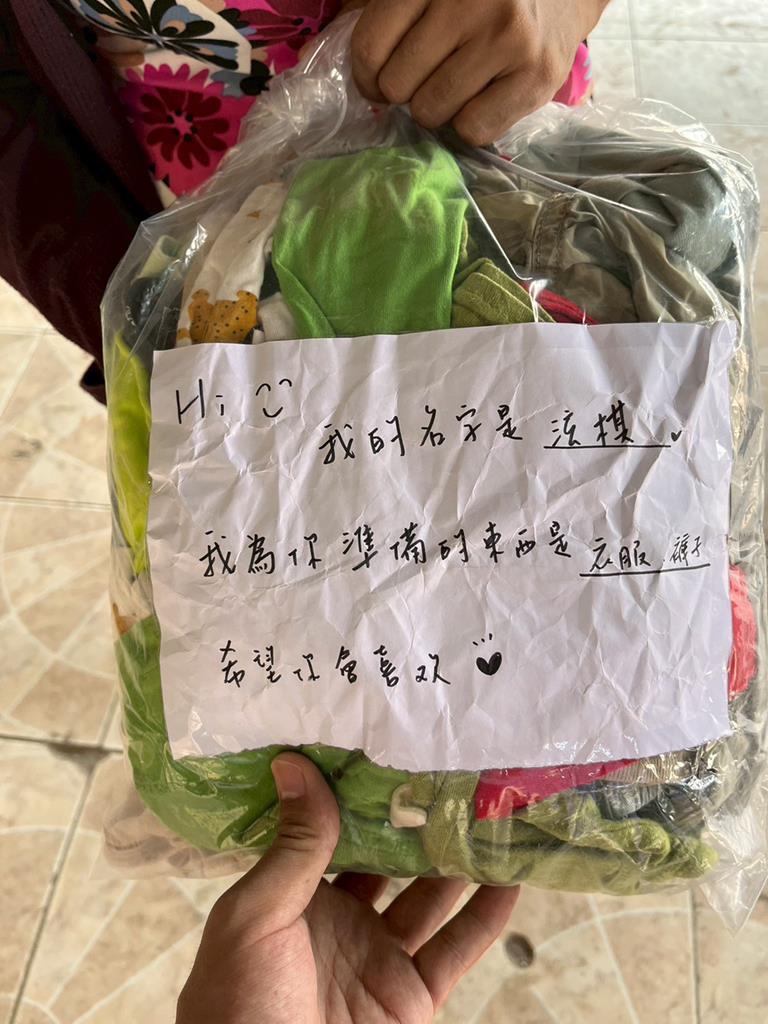 Hi
我的名字是 泫棋
我為你準備的東西是 衣服、褲子
希望你會喜欢